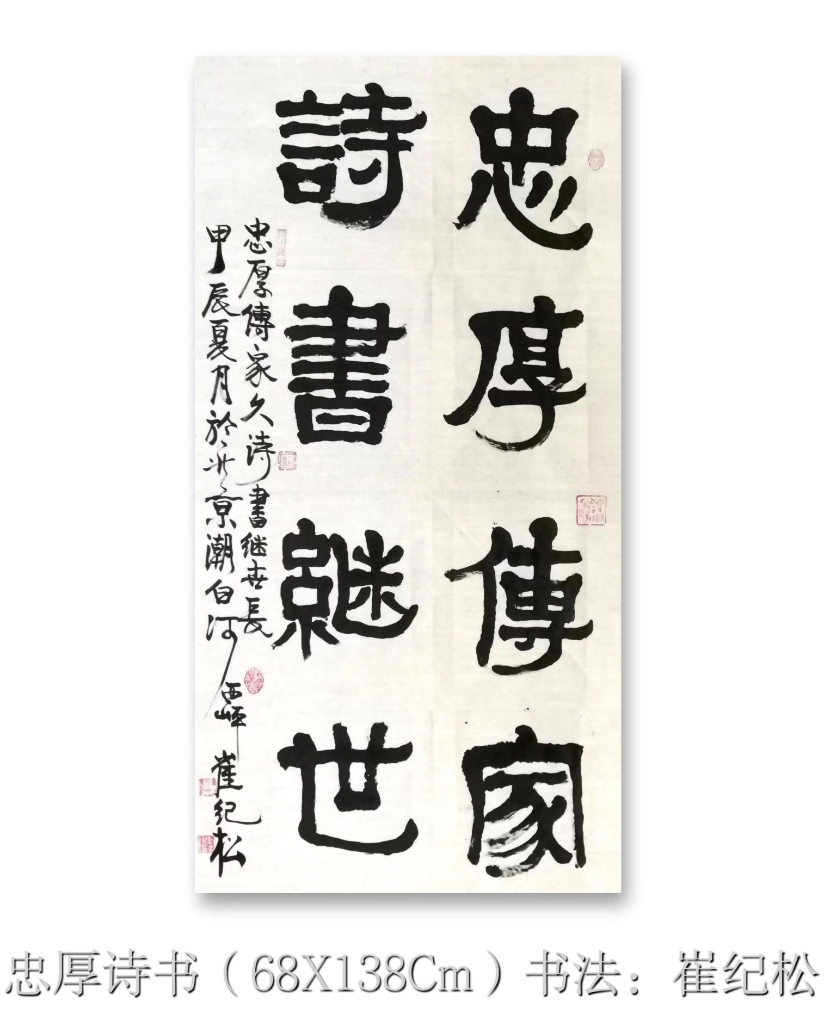 忠厚傳家
詩書繼世
忠厚傳家久詩書继世長
甲辰夏月於北京潮白河西岸崔纪松
忠厚诗书（68X138Cm）书法：崔纪松